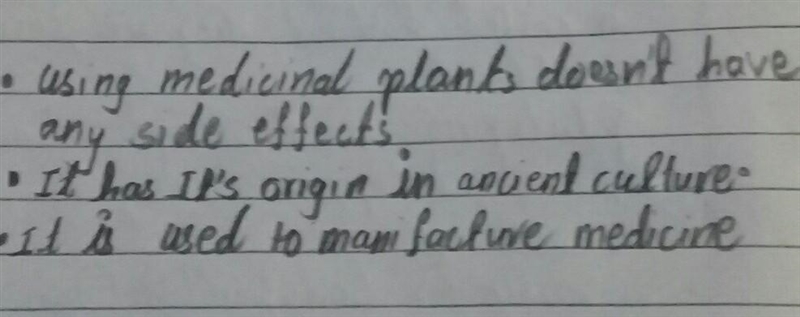 • using medicinal plants doesn't have
any side effects.
• It has It's origin in ancient culture.
• It is used to manufacture medicine